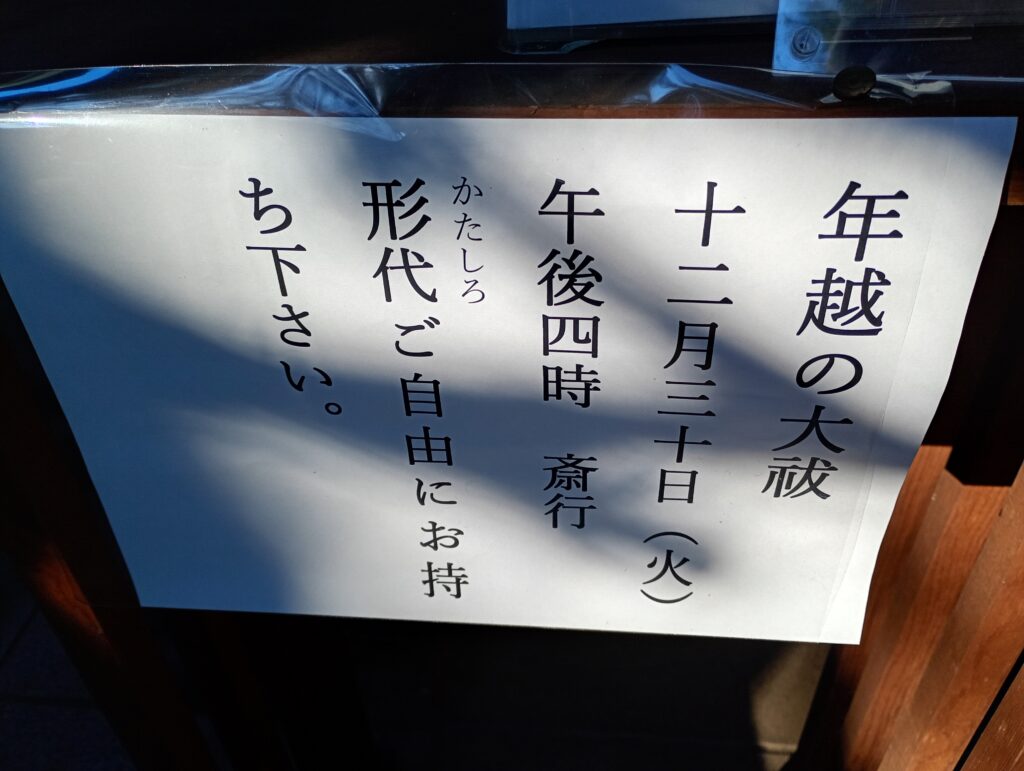 年越の大祓
十二月三十日（火）
午後四時　斎行
かたしろ
形代ご自由にお持
ち下さい。